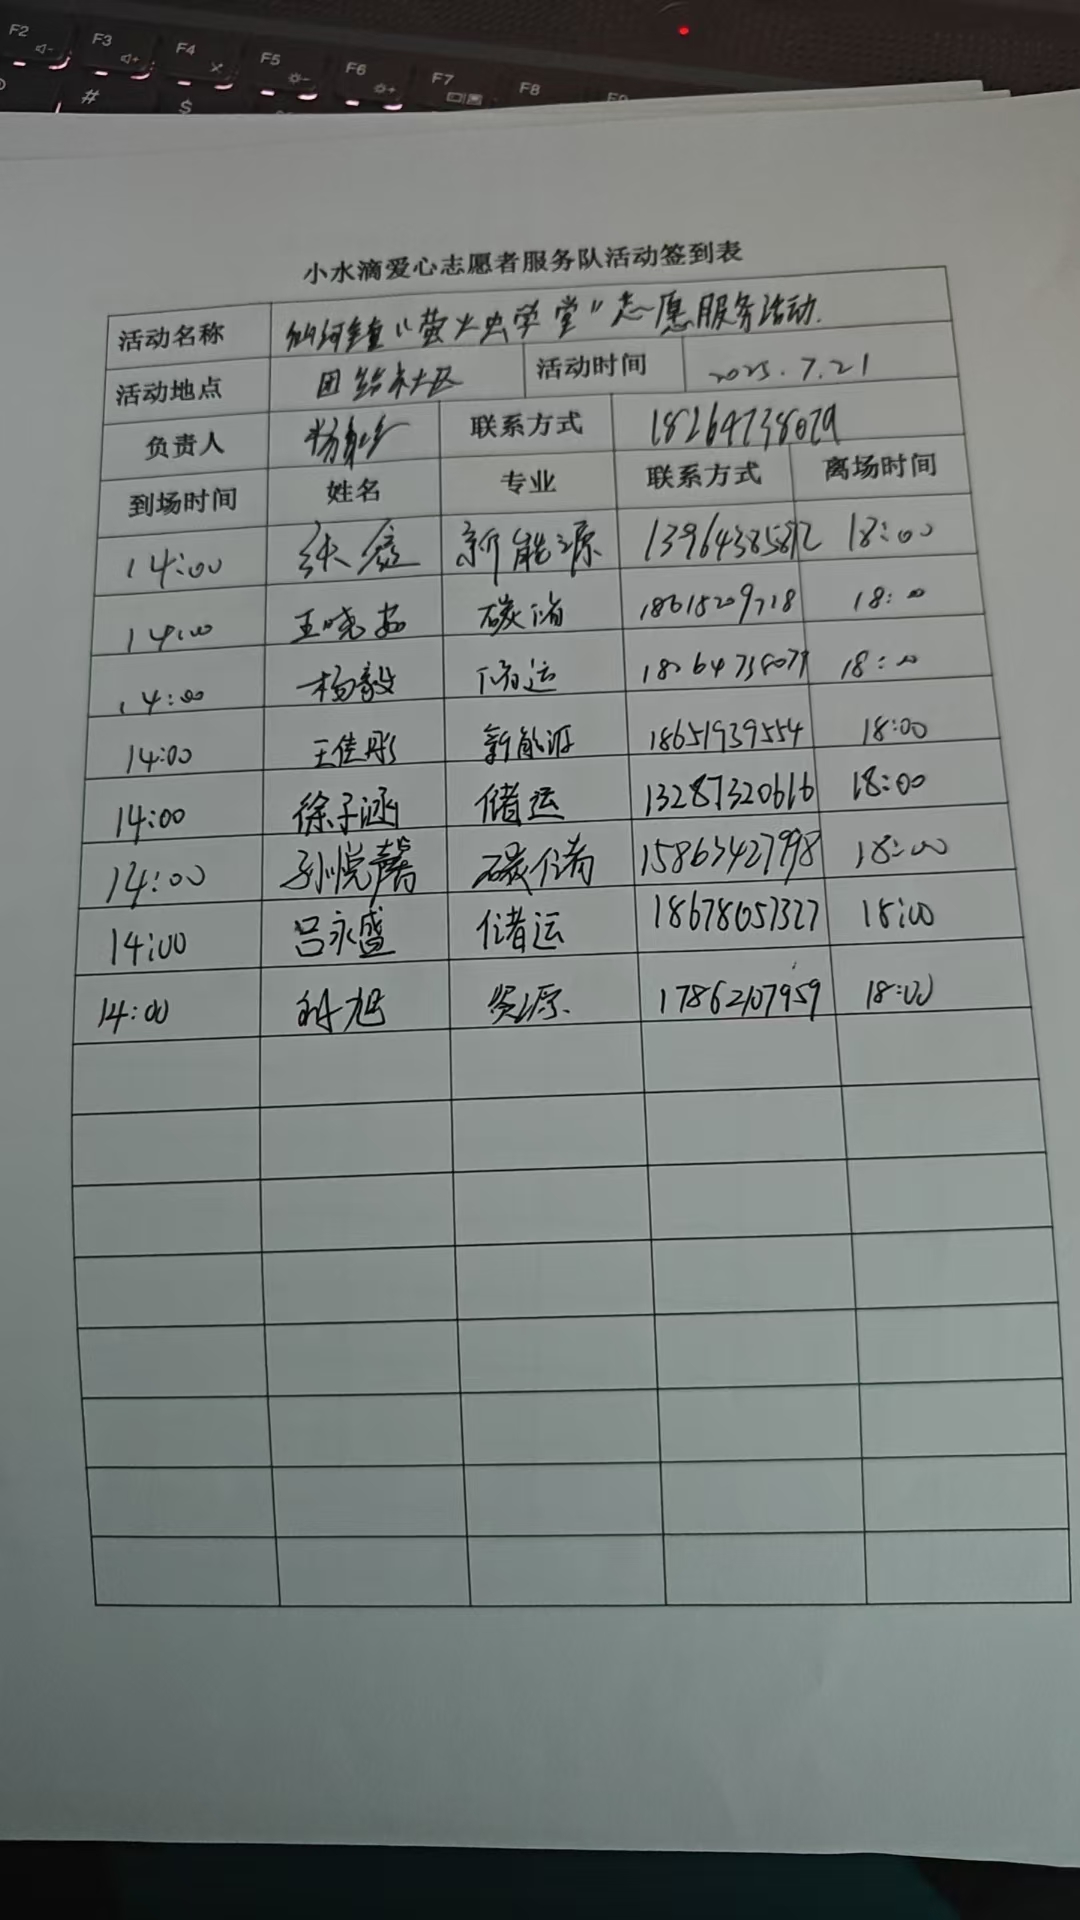 F2 F3 F4 F5 F6 F7 F8
# $
小水滴爱心志愿者服务队活动签到表
活动名称 仙河镇"萤火虫学堂"志愿服务活动.
活动地点 团结社区 活动时间 2025.7.21
负责人 联系方式 18264738079
到场时间 姓名 专业 联系方式 离场时间
14:00 张 新能源 18:00
14:00 王晓 碳储 18615209718 18:00
14:00 杨毅 储运 18264738079 18:00
14:00 王佳彤 新能源 18651939554 18:00
14:00 徐子涵 储运 13287320616 18:00
14:00 孙悦馨 碳储 15863427998 18:00
14:00 吕永盛 储运 18678057327 18:00
14:00 旭 资源 17862107959 18:00